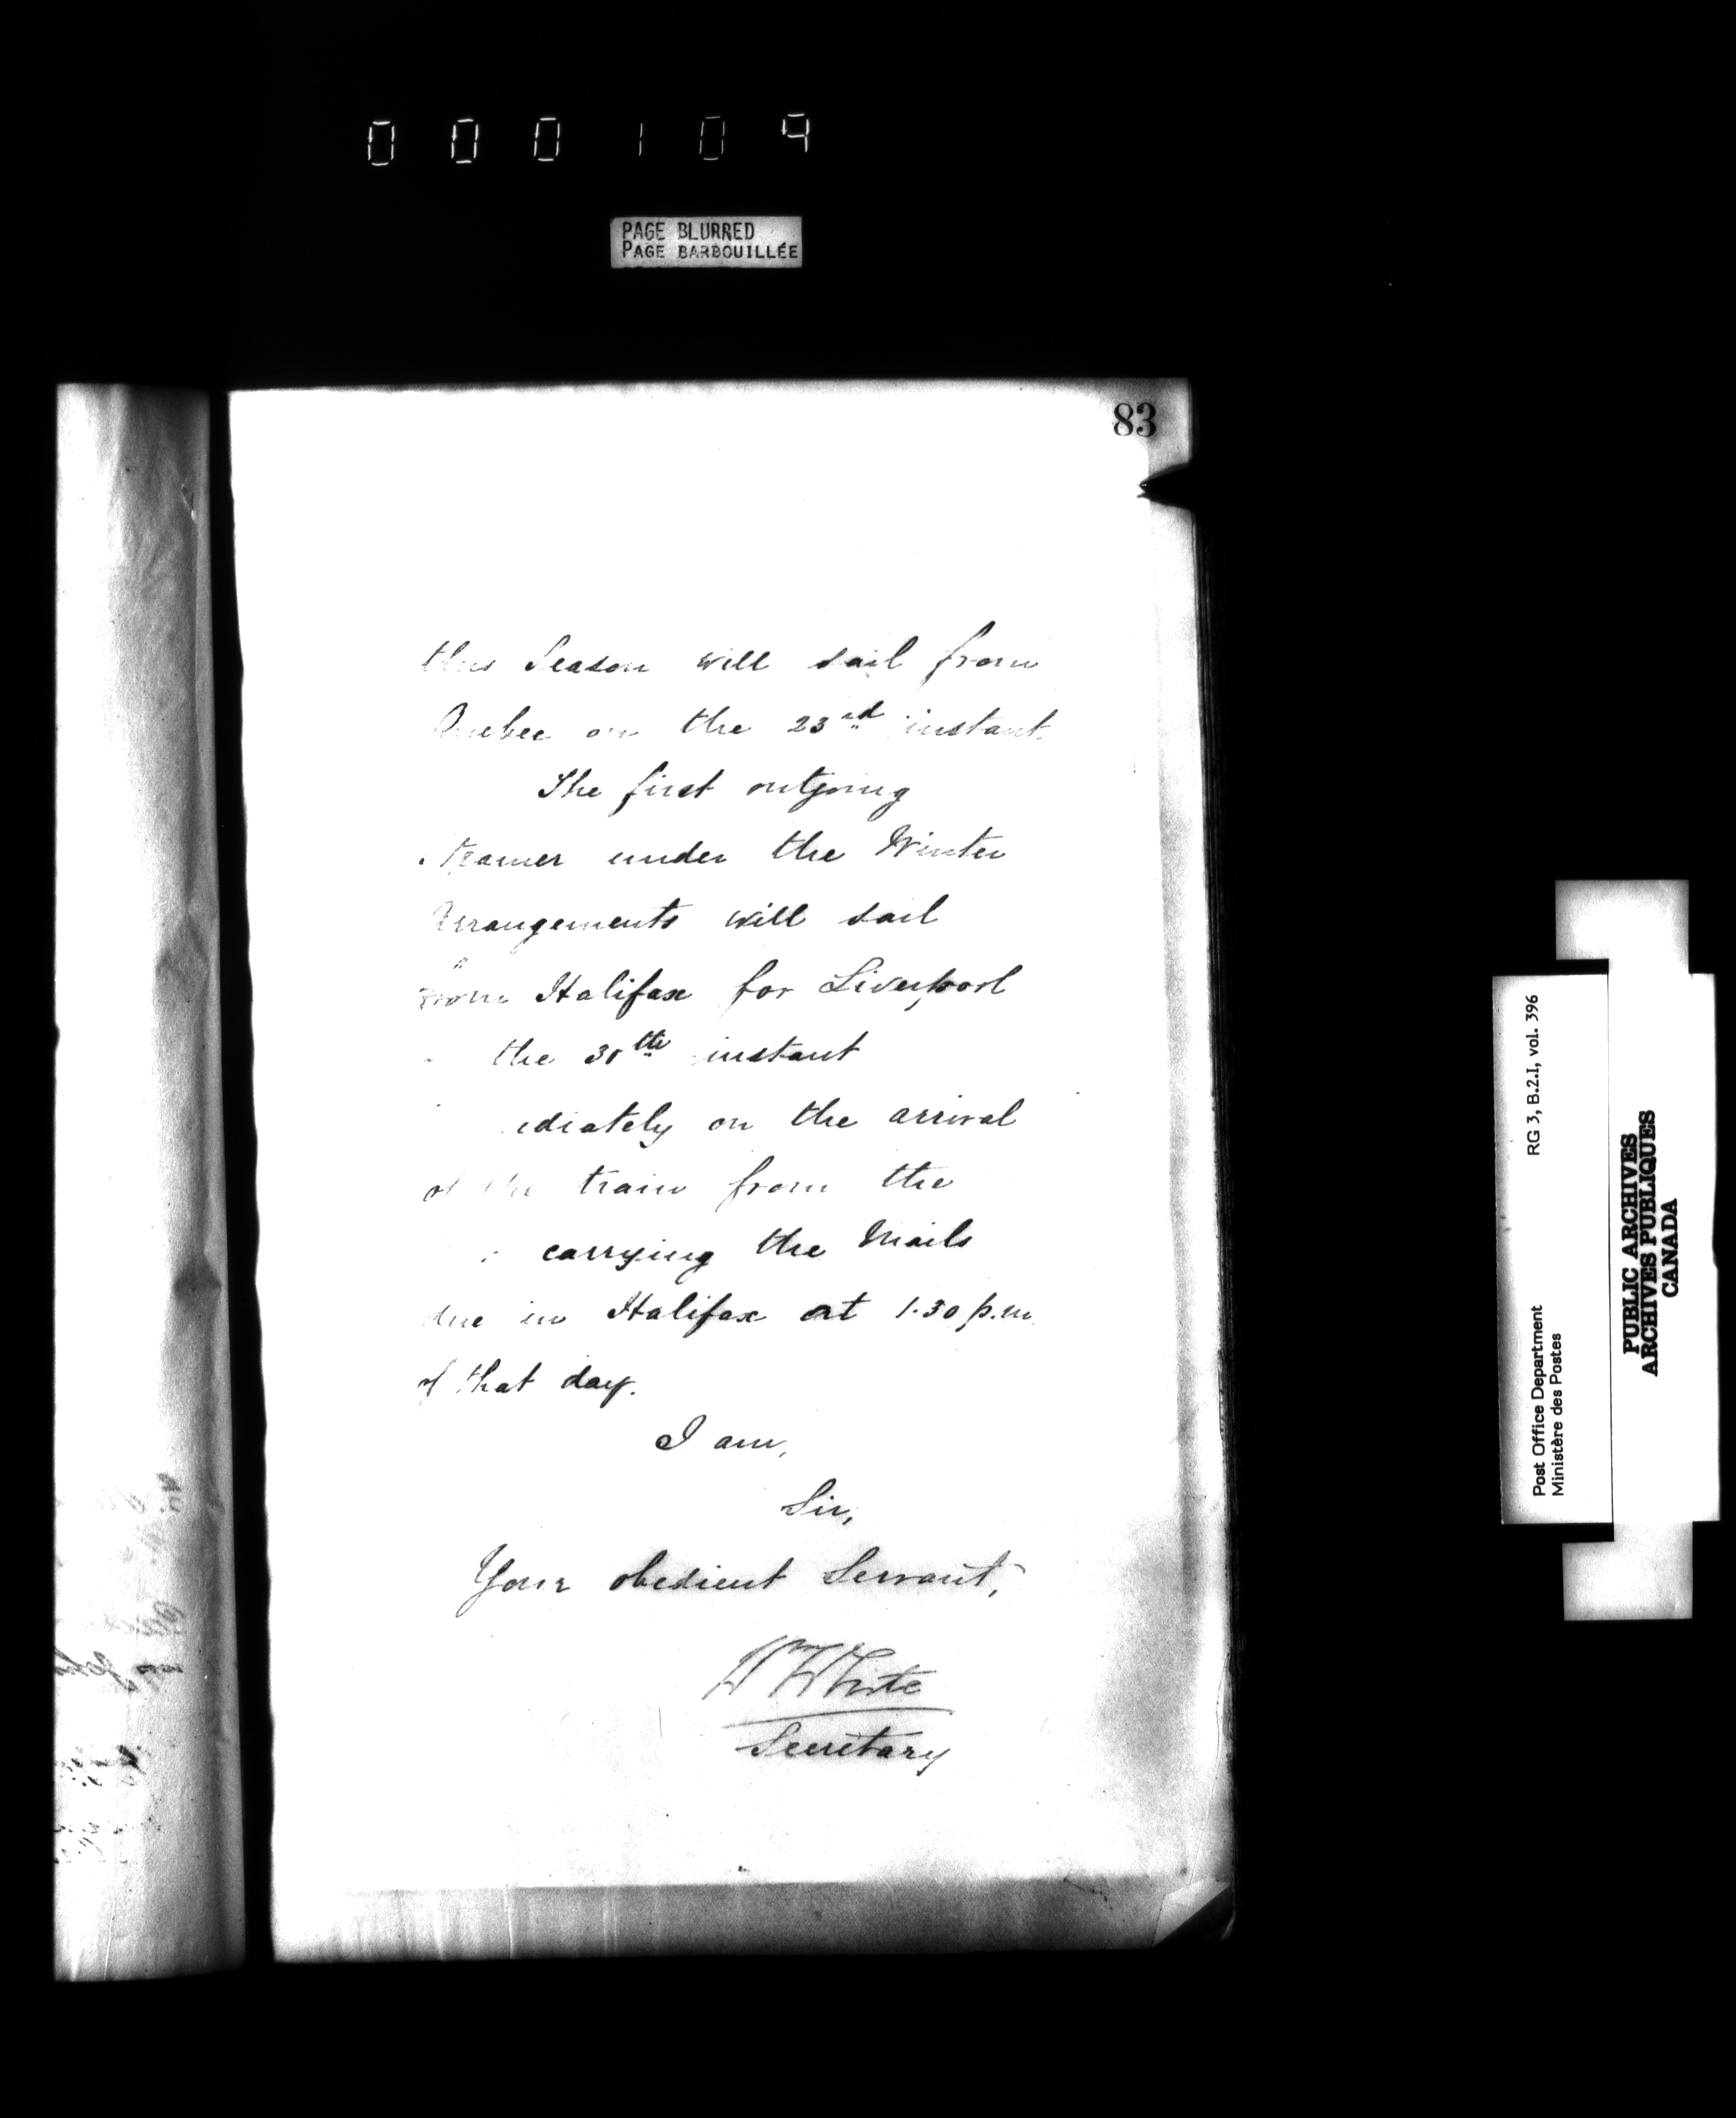 000109
PAGE BLURRED
PAGE BARBOUILLÉE
83
this Season will sail from
Quebec on the 23rd instant.
The first outgoing
Steamer under the Winter
Arrangements will sail
from Halifax for Liverpool
the 30th instant
ediately on the arrival
of the train from the
carrying the Mails
due in Halifax at 1.30 p.m.
of that day.
I am,
Sir,
Your obedient Servant,
W White
Secretary
RG 3, B.2.I, vol. 396
Post Office Department
Ministère des Postes
PUBLIC ARCHIVES
ARCHIVES PUBLIQUES
CANADA